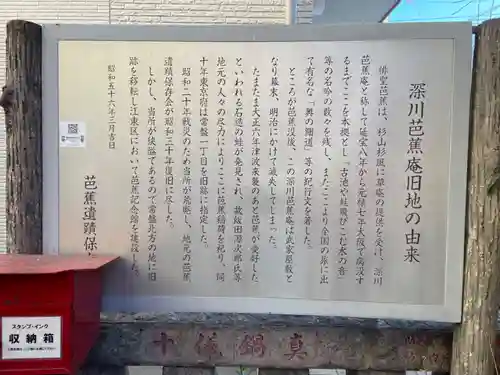 深川芭蕉庵旧地の由来
俳聖芭蕉は、杉山杉風に草庵の提供を受け、深川
芭蕉庵と称して延宝八年から元禄七年大阪で病没す
るまでここを本拠とし「古池や蛙飛びこむ水の音」
等の名吟の数々を残し、またここより全国の旅に出
て有名な「奥の細道」等の紀行文を著した。
ところが芭蕉没後、この深川芭蕉庵は武家屋敷と
なり幕末、明治にかけて滅失してしまった。
たまたま大正六年津波来襲のあと芭蕉が愛好した
といわれる石造の蛙が発見され、故飯田源次郎氏等
地元の人々の尽力によりここに芭蕉稲荷を祀り、同
十年東京府は常盤一丁目を旧跡に指定した。
昭和二十年戦災のため当所が荒廃し、地元の芭蕉
遺蹟保存会が昭和三十年復旧に尽した。
しかし、当所が狭隘であるので常盤北方の地に旧
跡を移転し江東区において芭蕉記念館を建設した。
昭和五十六年三月吉日
芭蕉遺蹟保
スタンプ・インク
収納箱
真鍋儀十